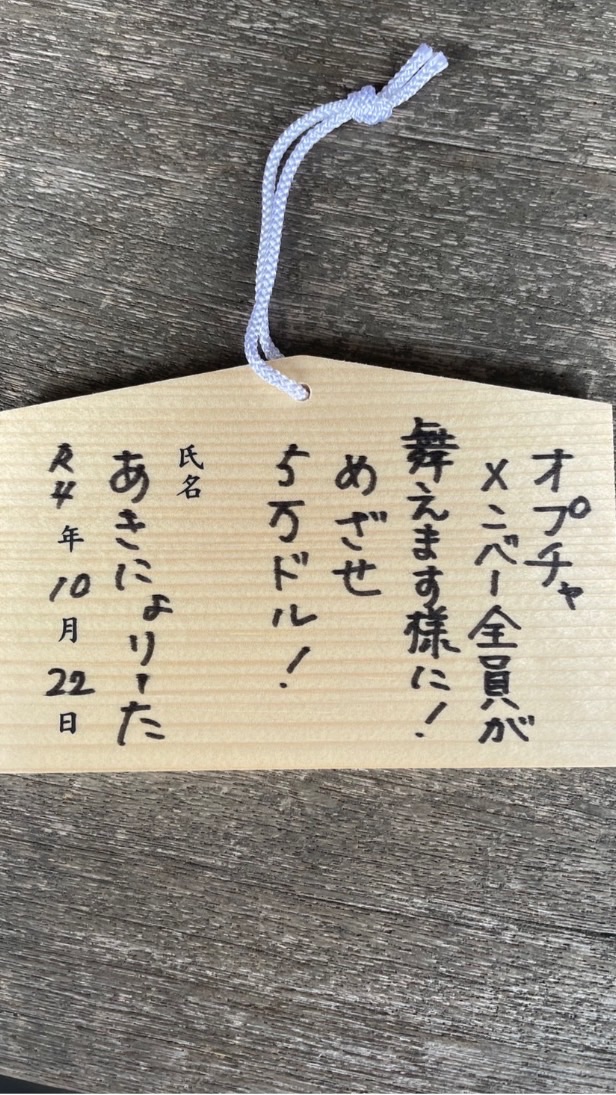 オプチャ
メンバー全員が
舞えます様に！
めざせ
5万ドル！
氏名
あきにょりーた
R4年10月22日